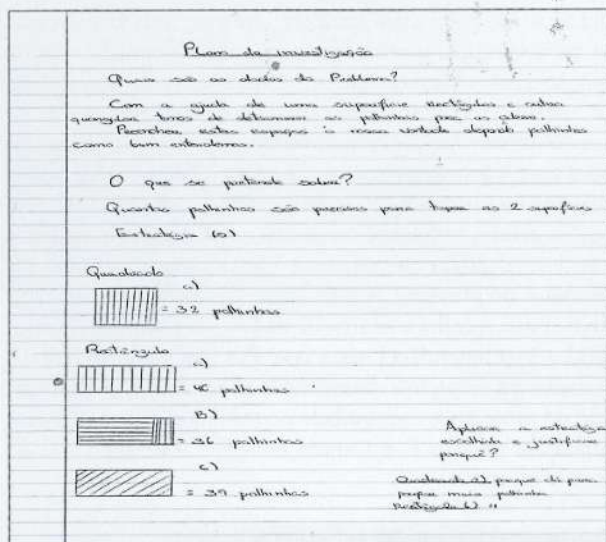 Plano da investigação
Quais são os dados do Problema?
Com a ajuda de uma superfície rectângular e outra
quangular temos de determinar as palhinhas para as
Preencher estes espaços à nossa vontade palhinhas
como bem entendermos.
O que se pretende saber?
Quantas palhinhas são precisas para tapar as 2 superfícies
Estratégia (s)
Quadrado
a)
= 32 palhinhas
Rectângulo
a)
= 40 palhinhas
B)
= 36 palhinhas
c)
= 39 palhinhas
Aplicar a estratégia
escolhida e justificar
porquê?
Quadrado a) porque dá para
mais palhinhas
Rectângulo b) "